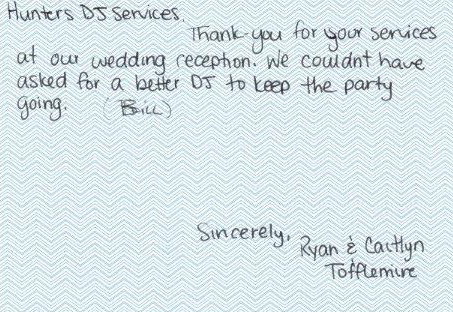 Hunters DJ Services,
Thank-you for your services
at our wedding reception. We couldnt have
asked for a better DJ to keep the party
going. (Bill)
Sincerely,
Ryan & Caitlyn
Tofflemire